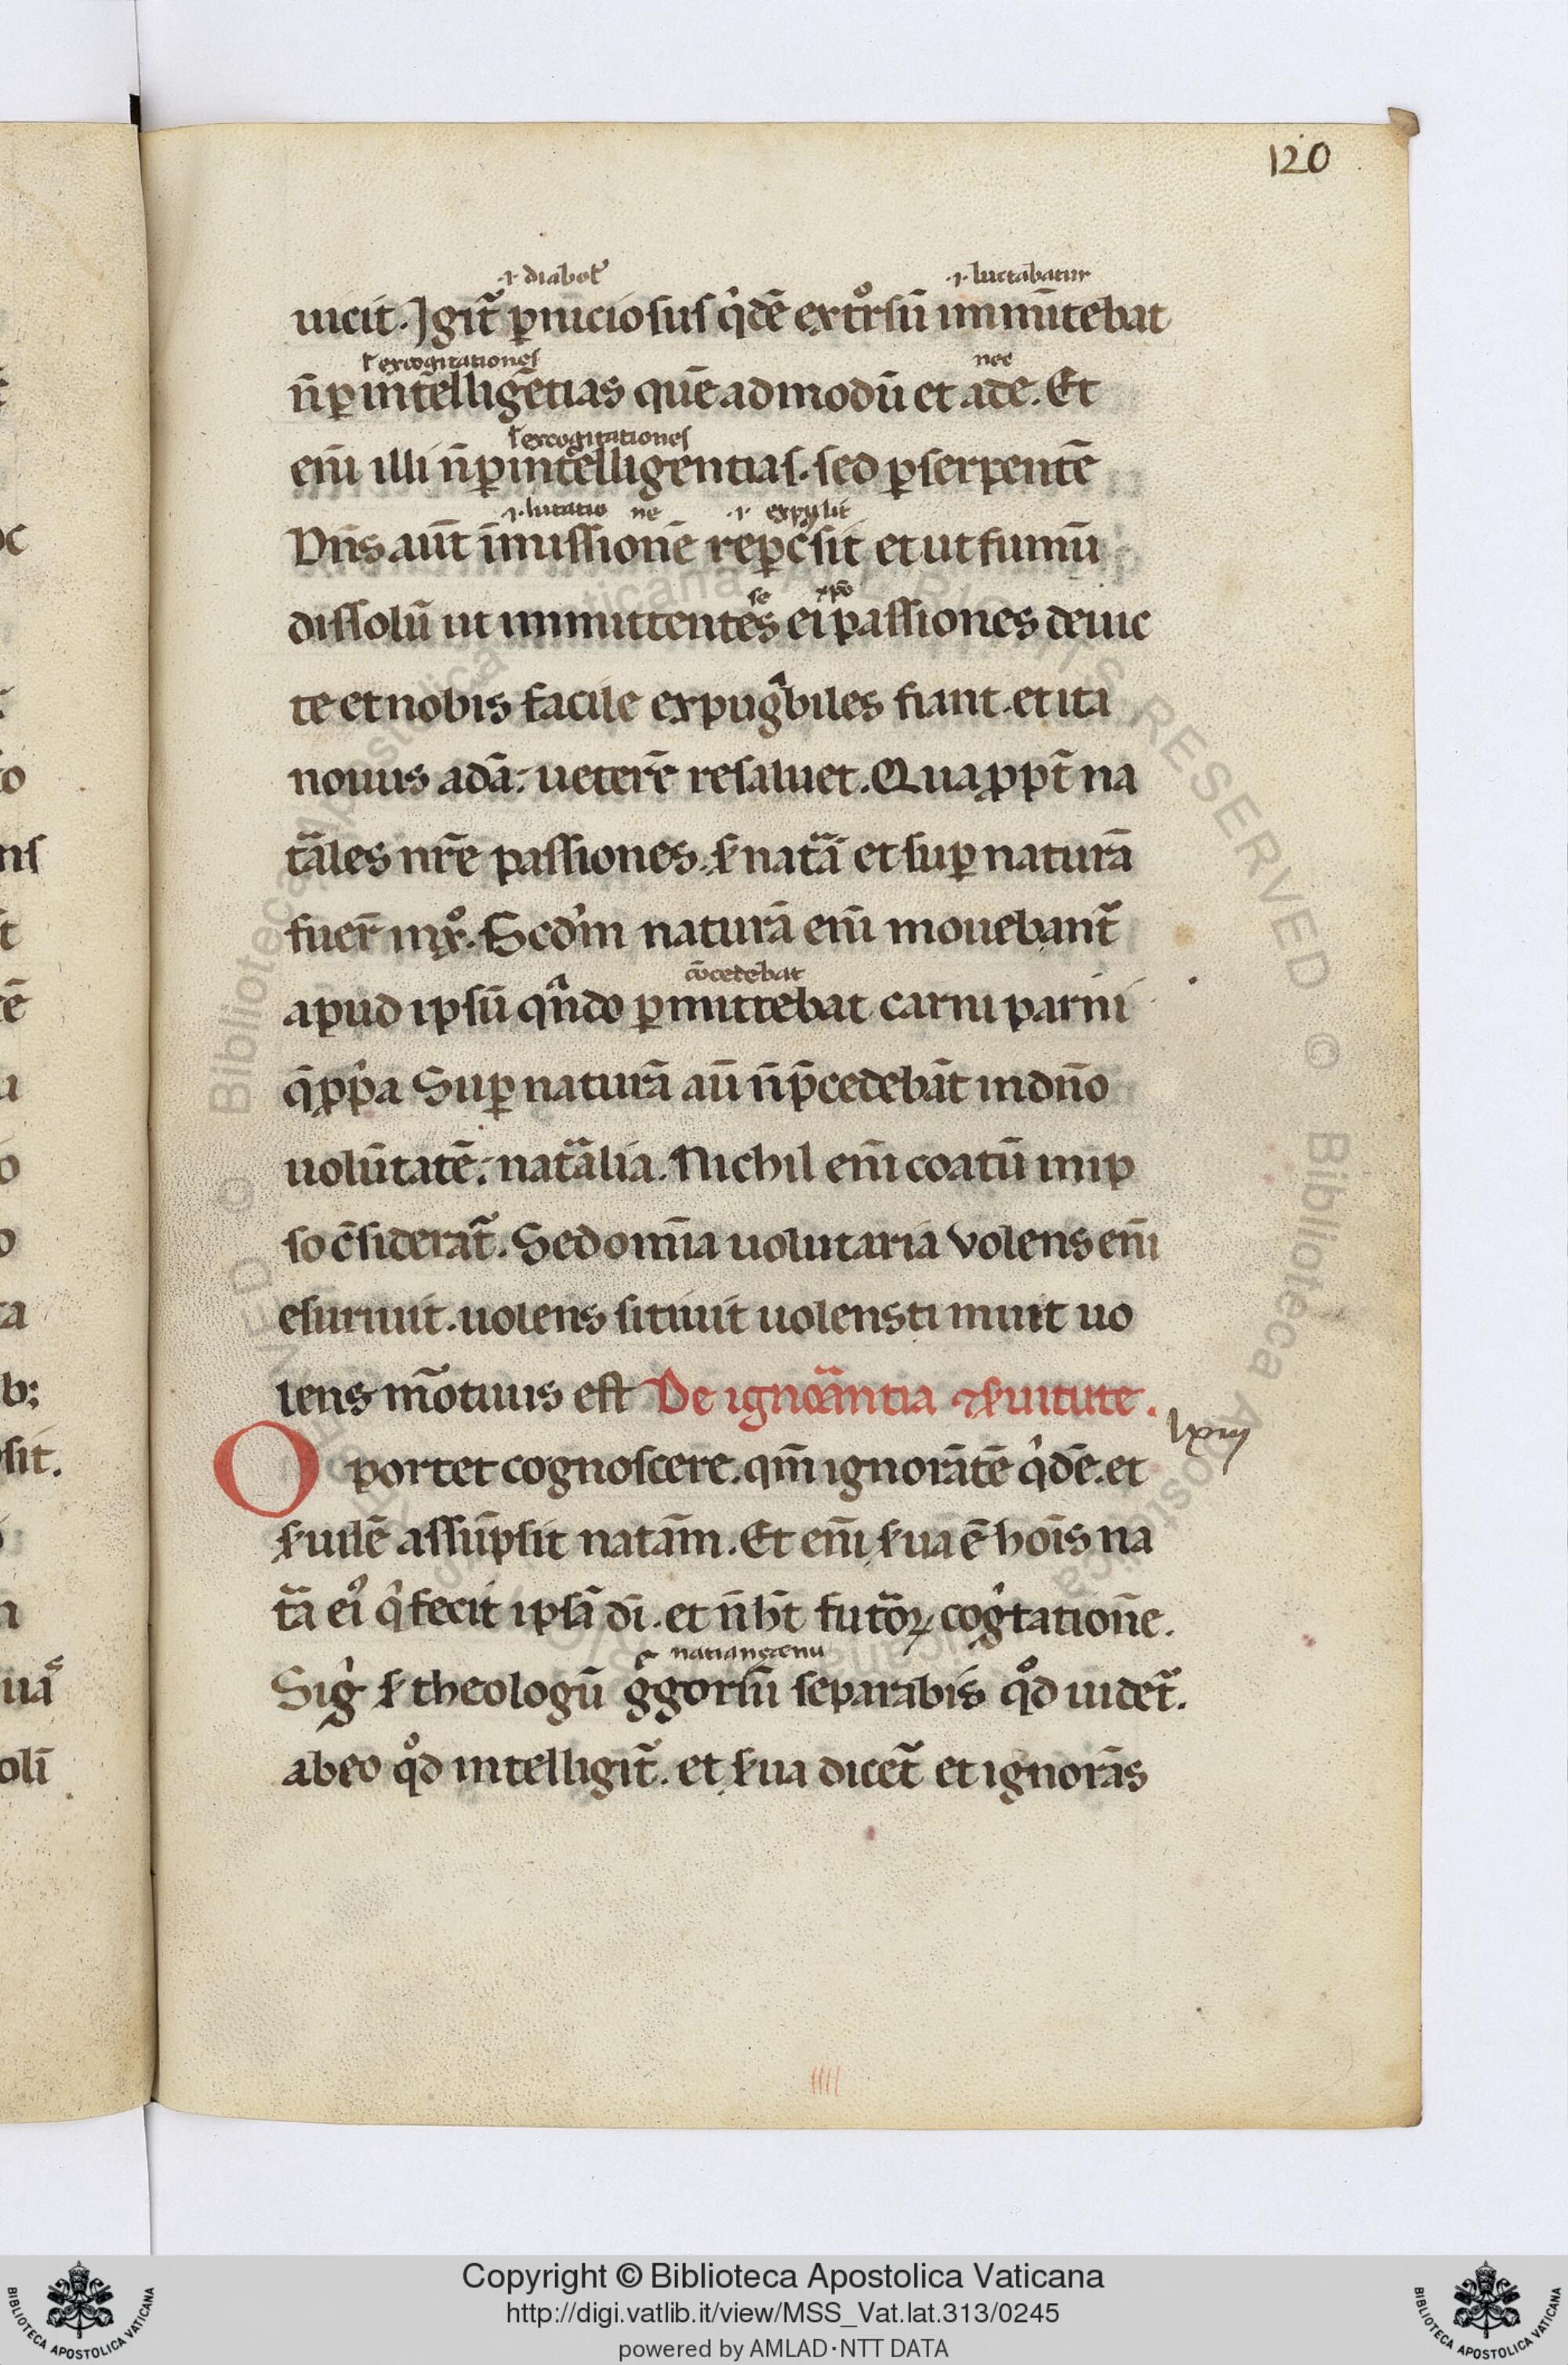 120
.i. diabol᷒ .i. luctabatur
uicit. Igit᷑ ꝑniciosus q͛dē extͦrsū immittebat
ł excogitationes nec
n̄ ꝑ intelligētias quē ad modū et ade. Et
ł excogitationes
eni᷑ illi n̄ ꝑ intelligentias. sed ꝑ serpentē
.i. luctatio ne .i. expulit
Dn̄s aūt īmissionē reꝑc̄sit et ut fumū
se xp̄o
dissolū ut immittentes ei passiones deuic
te et nobis facile expugᷓbiles fiant. et ita
nouus adā. ueterē resaluet. Quaꝓpt̄ na
tᷓles nr̄e passiones. ẜ natᷓ et suꝑ naturā
fuer̄ in xͦ. Scd̓m naturā eni᷑ mouebant᷑
cōcedebat
apud ipsū qᷓndo ꝑmittebat carni pati
q̄ ꝓp̓a Suꝑ naturā aū n̄ p̄cedebāt in dn̄o
uolūtatē. natᷓlia. Nichil eni᷑ coatū in ip
so c̄siderat᷑. Sed om̄ia uolutaria volens eni᷑
esuriuit. uolens sitiuit uolens timuit uo
lens m̄otuus est De ignorᷓntia ⁊ ẜuitute.
lxiiij
Oportet cognoscere. qm̄ ignorātē q͛dē. et
ẜuilē assūpsit natᷓm. Et eni᷑ ẜua ē hoīs na
tᷓ eiͥ q͛ fecit ipsā dī. et n̄ ht̄ futᷓoꝝ cog͛tationē.
natianzenu
Sig͛ ẜ theologū g͛gorium separabis qͦd uidet᷑.
ab eo qͦd intelligit᷑. et ẜua dicet᷑ et ignorās
IIII
Copyright © Biblioteca Apostolica Vaticana
http://digi.vatlib.it/view/MSS_Vat.lat.313/0245
powered by AMLAD·NTT DATA
BIBLIOTECA APOSTOLICA VATICANA
BIBLIOTECA APOSTOLICA VATICANA